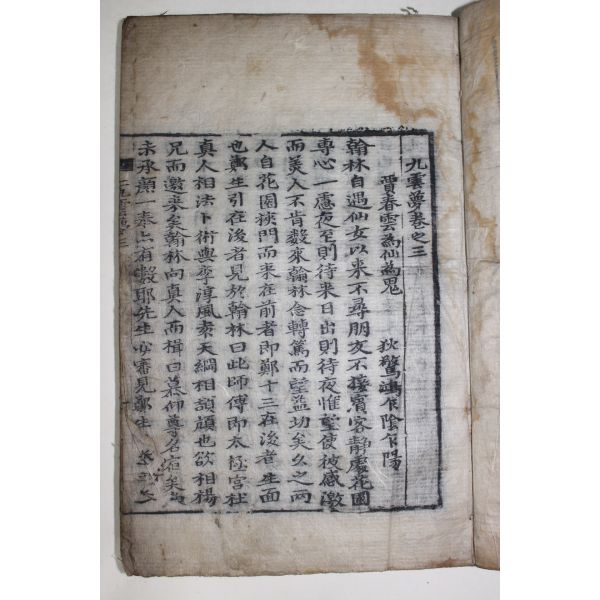 九雲夢卷之三
賈春雲爲仙爲鬼 狄驚鴻乍陰乍陽
翰林自遇仙女以来不尋朋友不接賓客静處花園
專心一慮夜至則待来日出則待夜惟望使彼感激
而美人不肯數来翰林念轉篤而望益切矣久之兩
人自花園挾門而来在前者即鄭十三在後者生面
也鄭生引在後者見於翰林曰此師傅即太極宮杜
真人相法卜術與李淳風袁天綱相頡頏也欲相楊
兄而邀来矣翰林向真人而揖曰慕仰尊名宿矣
未承顔一奉亦有數耶先生必審見鄭生